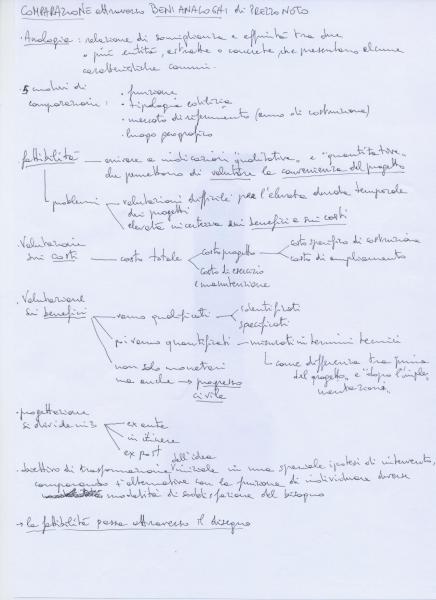 COMPARAZIONE attraverso BENI ANALOGHI di PREZZO NOTO
· Analogia : relazione di somiglianza e affinità tra due
o più entità, astratte o concrete, che presentano alcune
caratteristiche comuni.
5 analisi di comparazione :
· funzione
· tipologia edilizia
· mercato di riferimento (anno di costruzione)
· luogo geografico
fattibilità — arrivare a indicazioni "qualitative" e "quantitative"
che permettono di valutare la convenienza del progetto
problemi
valutazioni difficili per l'elevata durata temporale
dei progetti
elevata incertezza sui benefici e sui costi
Valutazione
sui costi — costo totale
costo progetto
costo di esercizio
e manutenzione
costo specifico di costruzione
costo di ampliamento
· Valutazione
sui benefici
vanno qualificati
identificati
specificati
poi vanno quantificati — misurati in termini tecnici
come differenza tra "prima
del progetto" e "dopo l'imple-
mentazione"
non solo monetari
ma anche → progresso
civile
· progettazione
si divide in 3
ex ante
in itinere
ex post
· obiettivo di trasformazione dell'idea iniziale in una speciale ipotesi di intervento,
comparando + alternative con la funzione di individuare diverse
modalità di soddisfazione del bisogno
→ la fattibilità passa attraverso il disegno